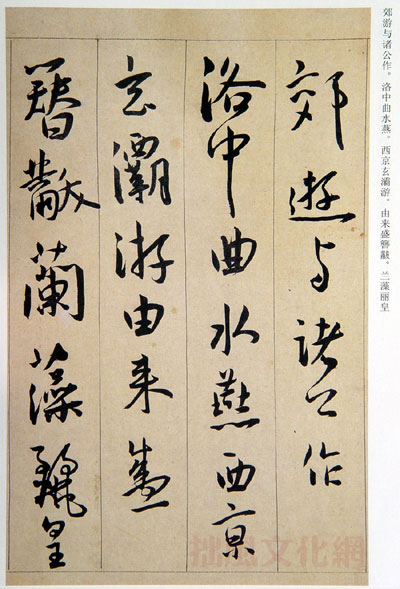 郊游与诸公作。洛中曲水燕。西京玄灞游。由来盛簪黻。兰藻丽皇
郊遊与諸公作
洛中曲水燕西京
玄灞游由来盛
簪黻蘭藻麗皇
拙風文化網